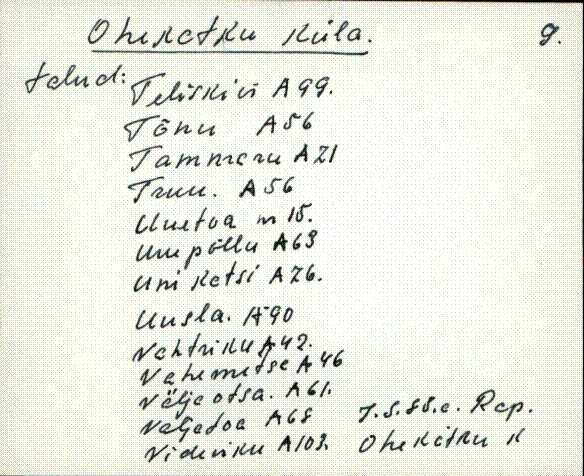 Ohekatku küla. 9.
talud: Teliskivi A 99.
Tõnu A 56
Tammaru A 21
Truu. A 56
Uuetoa m 15.
Uuepõllu A 63
Uni ketsi A 26.
Uusla. A 90
Vahtriku A 42.
Vahemetsa A 46
Väljaotsa. A 61.
Väljatoa A 68
Videviku A 103.
Rap.
Ohekatku k